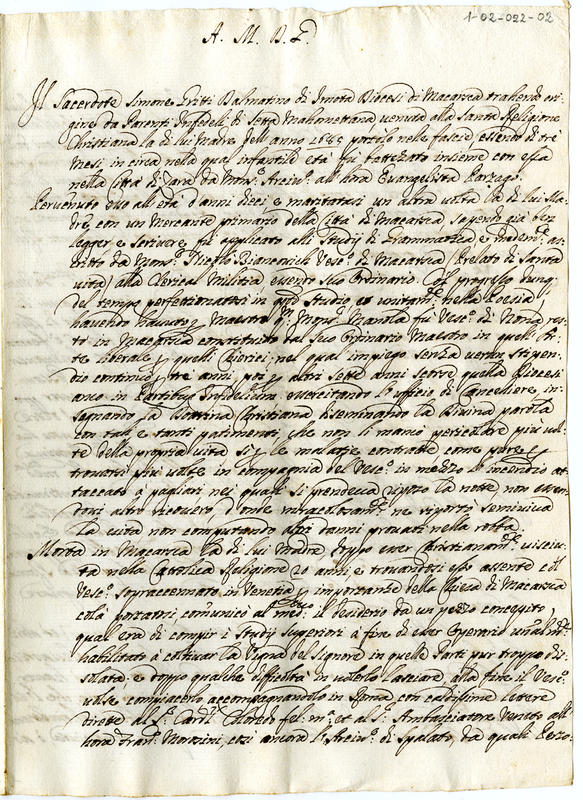 1-02-022-02
A. M. D. G.
Il Sacerdote Simone Gritti Dalmatino di Imota Diocesi di Macarsca trahendo ori-
gine da Parenti Infedeli di Setta Mahomettana venuta alla Santa Religione
Christiana la di lui Madre dell' anno 1685 portilo nelle fascie, essendo di tre
mesi in circa nella qual infantile età fu battezato insieme con essa
nella Città di Zara da Mons.r Arciv.o all' hora Evangelista Parzago.
Pervenuto duo all' età d' anni dieci, e maritatasi un altra volta la di lui Ma-
dre con un Mercante primario della Città di Macarsca, sapendo già ben
legger e scrivere fu applicato alli Studij di Grammatica, e
ascritto da Mons.r Nicolo Bianovich Vesc.o di Macarsca Prelato di Santa
vita, alla Clerical Militia essendo suo Ordinario. In progresso dung;
del tempo perfettionatosi in Studio nella Poesia
havendo havuto Maestro Mons.r Manola fù Vesc.o di Nona res-
tò in Macarsca constituito dal Suo Ordinario Maestro in quell' Ar-
te literale quelli Chierici, nel qual impiego senza verun stipen-
dio continuò tre anni, poi altri sette anni servè quella Diocesi
anco in Partibus Infidelium essercitando l' officio di Cancelliere in-
segnando la Dottrina Cristiana diseminando la Divina parola
con tali e tanti patimenti, che non li mancò pericolare più vol-
te della propria vita si le malatie contratte come pure
trovarsi più volte in compagnia del Vesc.o in mezzo l' incendio at-
taccato a pagliari nei quali si prendeva riposo la notte, non essen-
dovi altro ricovero d' onde miracolosam.te ne riportò semiviva
la vita non computando altri danni provati nella robba.
Morta in Macarsca la di lui Madre doppo esser Christianam.te vissiu-
ta nella Cattolica Religione 20 anni, e trovandosi esso assente col
Vesc.o sopraccennato in Venetia importanze della Chiesa di Macarsca
colà portatosi, comunicò al med.mo Vesc.o il desiderio da un pezzo concepito,
qual era di compir i Studij superiori à fine di esser Operario
habilitato à coltivar la Vigna del Signore in quelle parti pur troppo di-
solata, e doppo qualche difficoltà in volerlo lasciare, alla fine il Vesc.o
volse compiacerlo accompagnandolo in Roma con caldissime lettere
dirette al S.r Card.l Coloredo fel: m: et al S.r Ambasciatore Veneto all'
hora Fran.co Morosini, così ancora l' Arciv.o di Spalato, da quali Perso-